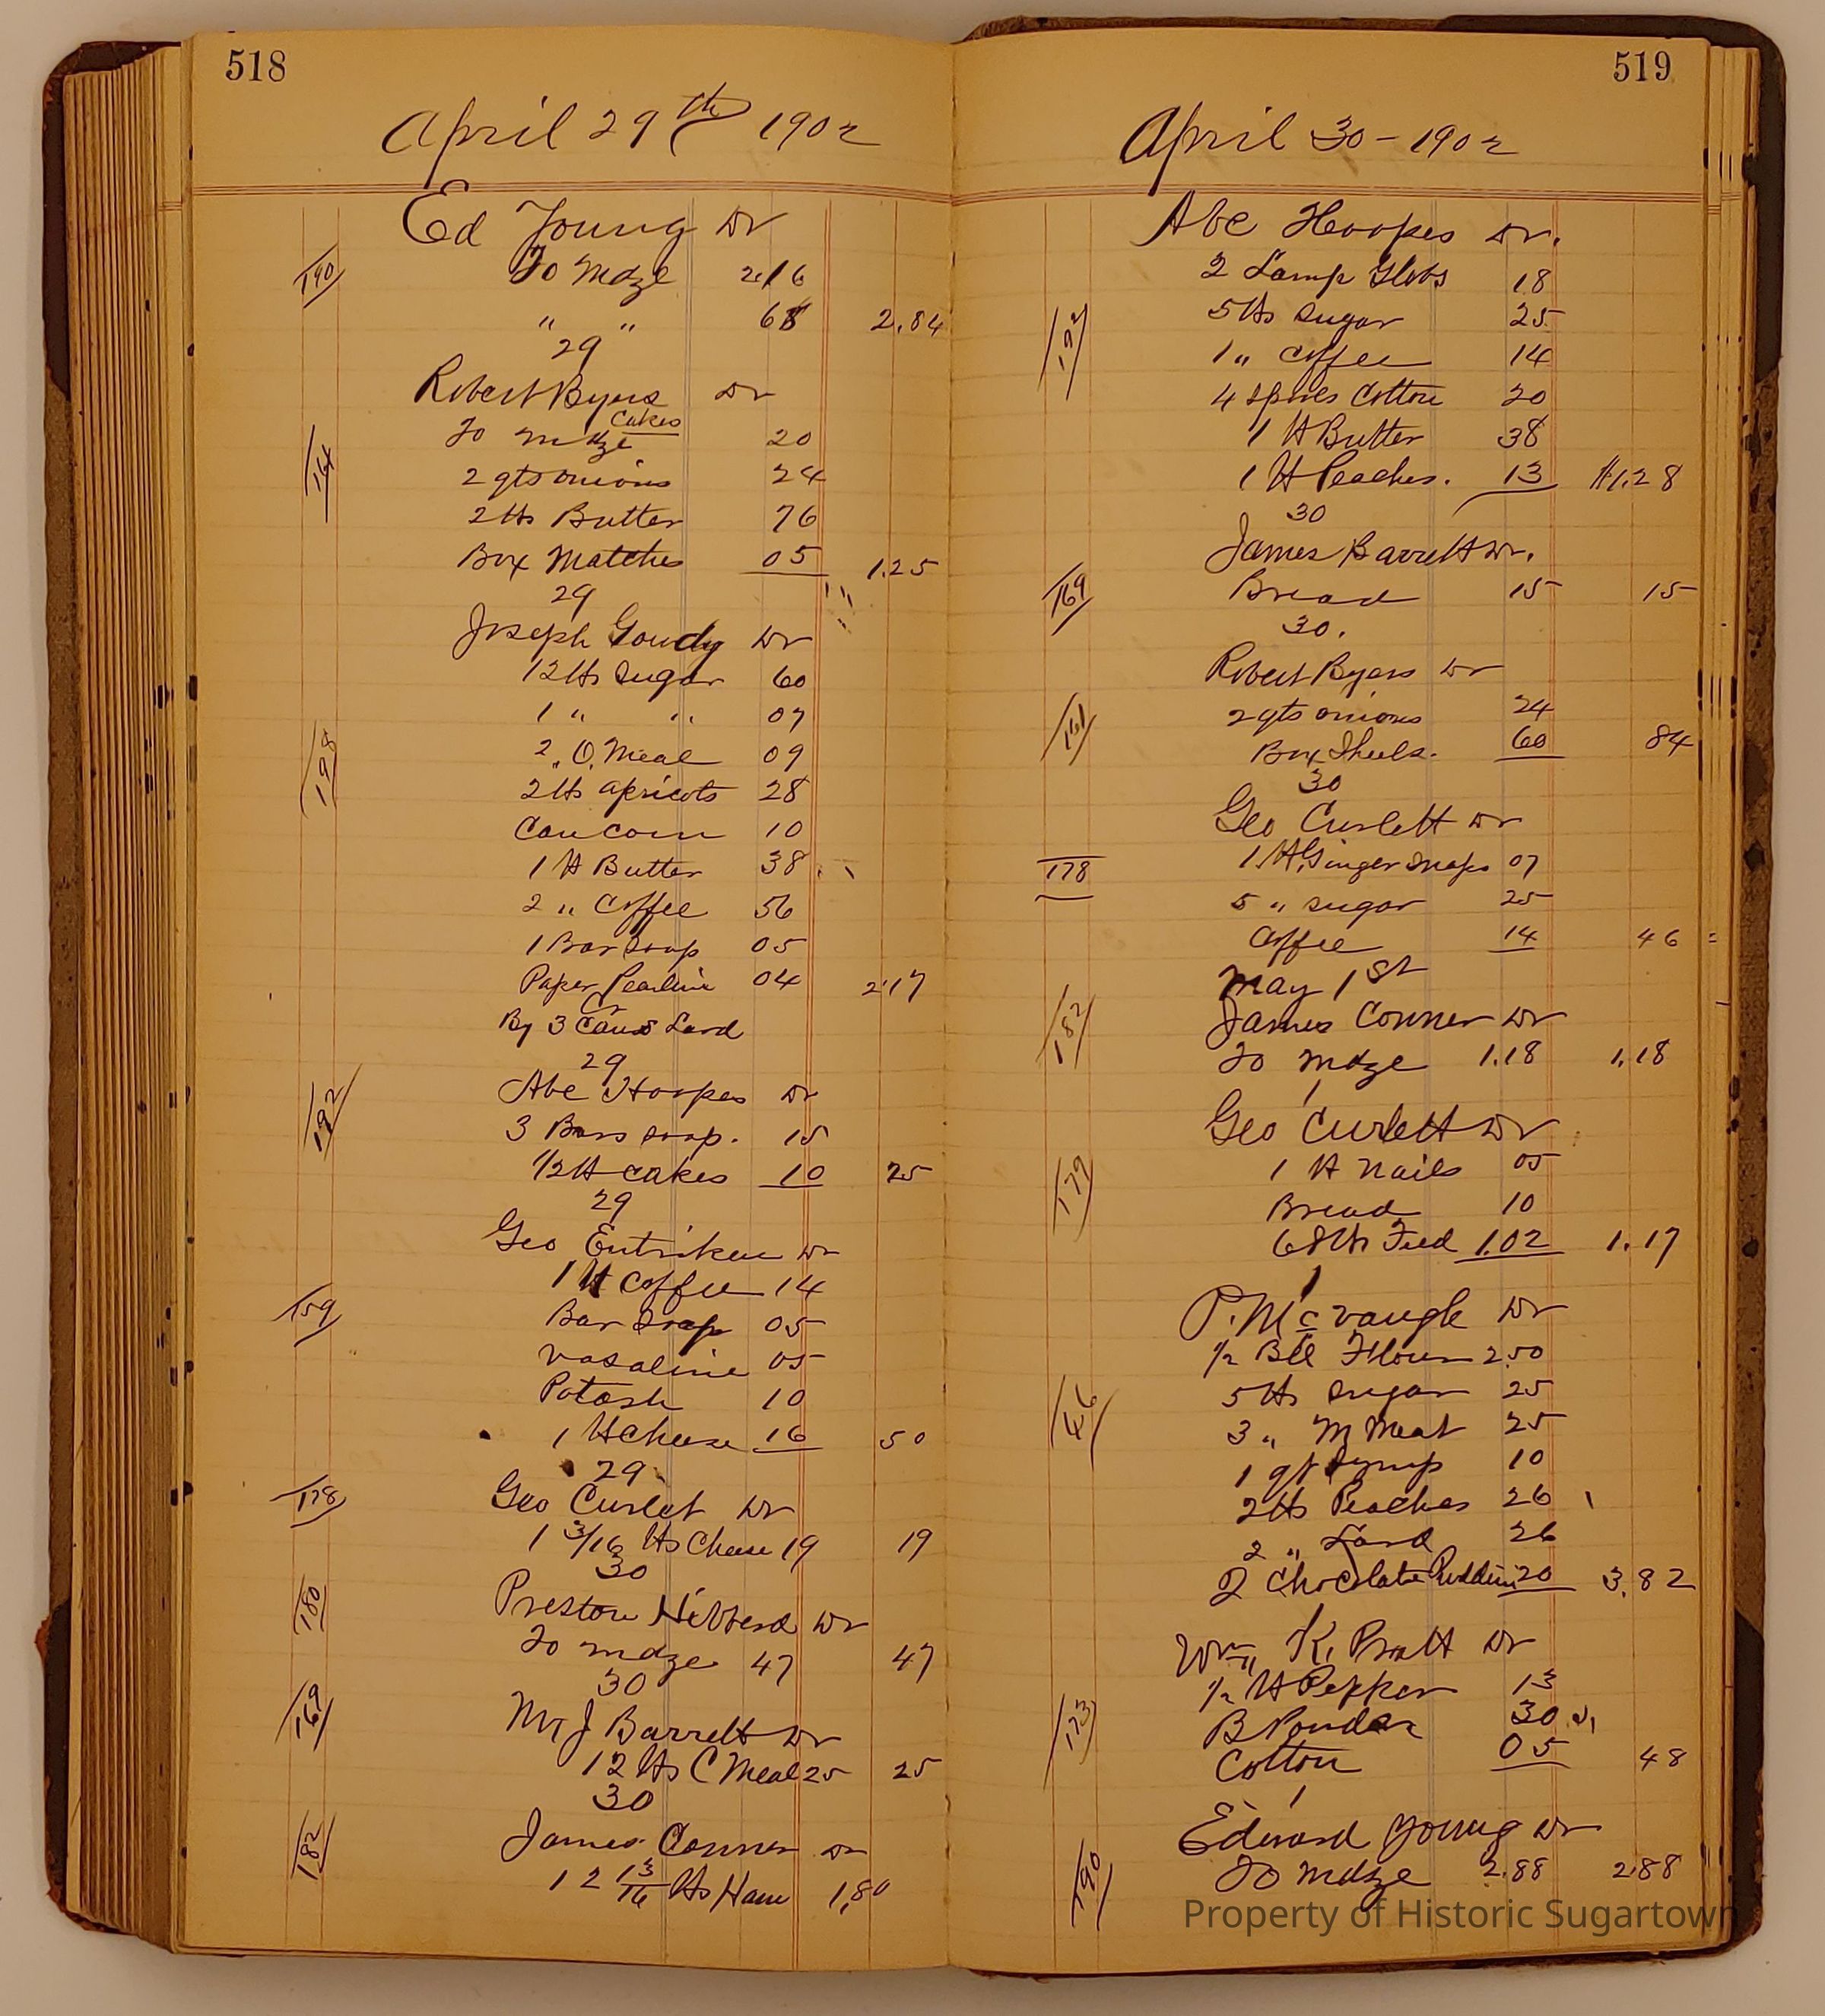 518
April 29th 1902
Ed Young Dr
190
To Mdze 2.16
" " 68 2.84
29
Robert Byers Dr
Cakes
To mdze 20
161
2 qts onions 24
2 lbs Butter 76
Box Matches 05 1.25
29
Joseph Gowdy Dr
12 lbs Sugar 60
1 " " 07
198
2 " O. Meal 09
2 lbs apricots 28
Can corn 10
1 lb Butter 38
2 " Coffee 56
1 Bar Soap 05
Paper Pearline 04 2.17
Cr
By 3 Cans Lard
29
192
Abe Hoopes Dr
3 Bars soap. 15
1/2 lb cakes 10 25
29
Geo Entriken Dr
1 lb Coffee 14
159
Bar Soap 05
vasaline 05
Potash 10
1 lb Cheese 16 50
29
178
Geo Curlet Dr
1 3/16 lbs Cheese 19 19
30
180
Preston Hibberd Dr
To mdze 47 47
30
169
Mr J Barrett Dr
12 lbs C Meal 25 25
30
182
James Conner Dr
12 13/16 lbs Ham 1.80
519
April 30 - 1902
Abe Hoopes Dr.
2 Lamp Globs 18
192
5 lbs Sugar 25
1 " Coffee 14
4 Spools Cotton 20
1 lb Butter 38
1 lb Peaches. 13 $1.28
30
James Barrett Dr.
169
Bread 15 15
30.
Robert Byers Dr
161
2 qts onions 24
Box Shells. 60 84
30
Geo Curlett Dr
178
1 lb Ginger Snaps 07
5 " sugar 25
Coffee 14 46
May 1st
182
James Conner Dr
To mdze 1.18 1.18
1
Geo Curlett Dr
179
1 lb Nails 05
Bread 10
68 lbs Feed 1.02 1.17
1
P. Mcvaugh Dr
1/2 Bbl Flour 2.50
5 lbs Sugar 25
3 " M Meat 25
1 qt Syrup 10
2 lbs Peaches 26
2 " Lard 26
2 Chocolate Puddin 20 3.82
Wm K. Pratt Dr
1/2 lb Pepper 13
173
B Powder 30
Cotton 05 48
1
Edward Young Dr
190
To mdze 2.88 2.88
Property of Historic Sugartown